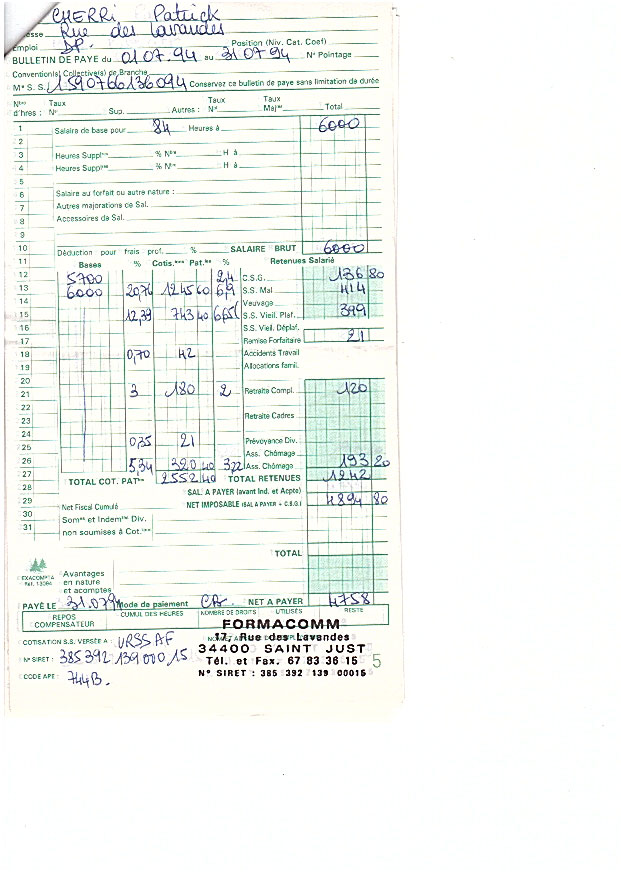 CHERRI Patrick
esse Rue des Lavandes
Emploi DP. Position (Niv. Cat. Coef)
BULLETIN DE PAYE du 01.07.94 au 31.07.94 N° Pointage
Convention(s) Collective(s) de Branche
Mle S.S. 1590766136094 Conservez ce bulletin de paye sans limitation de durée
Nbre d'hres : Taux N° Sup. Autres : Taux N° Taux Maj. Total
1 Salaire de base pour 84 Heures à 6000
2
3 Heures Suppl. % Nbre H à
4 Heures Supp. % Nbre H à
5
6 Salaire au forfait ou autre nature :
7 Autres majorations de Sal.
8 Accessoires de Sal.
9
10 Déduction pour frais prof. % SALAIRE BRUT 6000
11 Bases % Cotis. Pat. % Retenues Salarié
12 5700 2,4 C.S.G. 136 80
13 6000 20,76 1245 60 6,9 S.S. Mal 414
Veuvage
15 12,39 743 40 6,65 S.S. Vieil. Plaf. 399
16 S.S. Vieil. Déplaf.
17 Remise Forfaitaire 21
18 0,70 42 Accidents Travail
Allocations famil.
20
21 3 180 2 Retraite Compl. 120
22
23 Retraite Cadres
24
25 0,35 21 Prévoyance Div.
Ass. Chômage
26 5,34 320 40 3,22 Ass. Chômage 193 20
27 TOTAL COT. PAT. 2552 40 TOTAL RETENUES 1242
28 SAL. A PAYER (avant Ind. et Acpte)
29 Net Fiscal Cumulé NET IMPOSABLE (SAL. A PAYER + C.S.G.) 4894 80
30 Som. et Indem. Div.
31 non soumises à Cot.
TOTAL
EXACOMPTA Réf. 13094 Avantages en nature et acomptes
PAYÉ LE 31.07.94 Mode de paiement NET A PAYER 4758
REPOS COMPENSATEUR CUMUL DES HEURES NOMBRE DE DROITS UTILISÉS RESTE
COTISATION S.S. VERSÉE A : URSSAF
N° SIRET : 385 392 139 000 15
CODE APE : 744B.
FORMACOMM
17, Rue des Lavandes
34400 SAINT JUST
Tél. et Fax. 67 83 36 15
N° SIRET : 385 392 139 00015
5